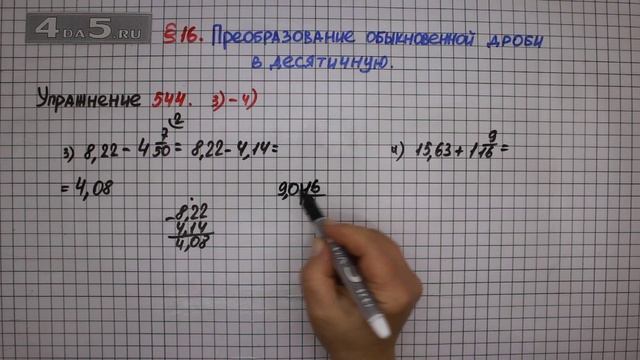 4DA5.RU
§16. Преобразование обыкновенной дроби
в десятичную.
Упражнение 544. 3)-4)
3) 8,22 - 4 7/50 = 8,22 - 4,14 =
= 4,08
- 8,22
4,14
4,08
4) 15,63 + 1 9/16 =